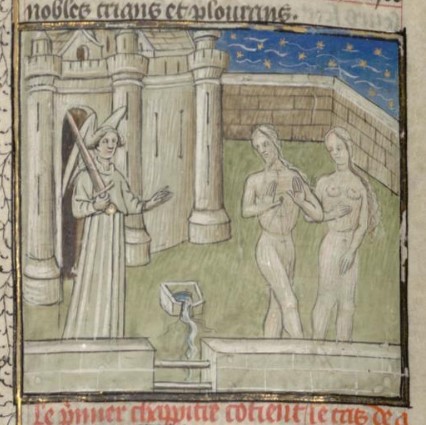 nobles crians et plourans.
Le p̃mier chappitre cõtient le cas de